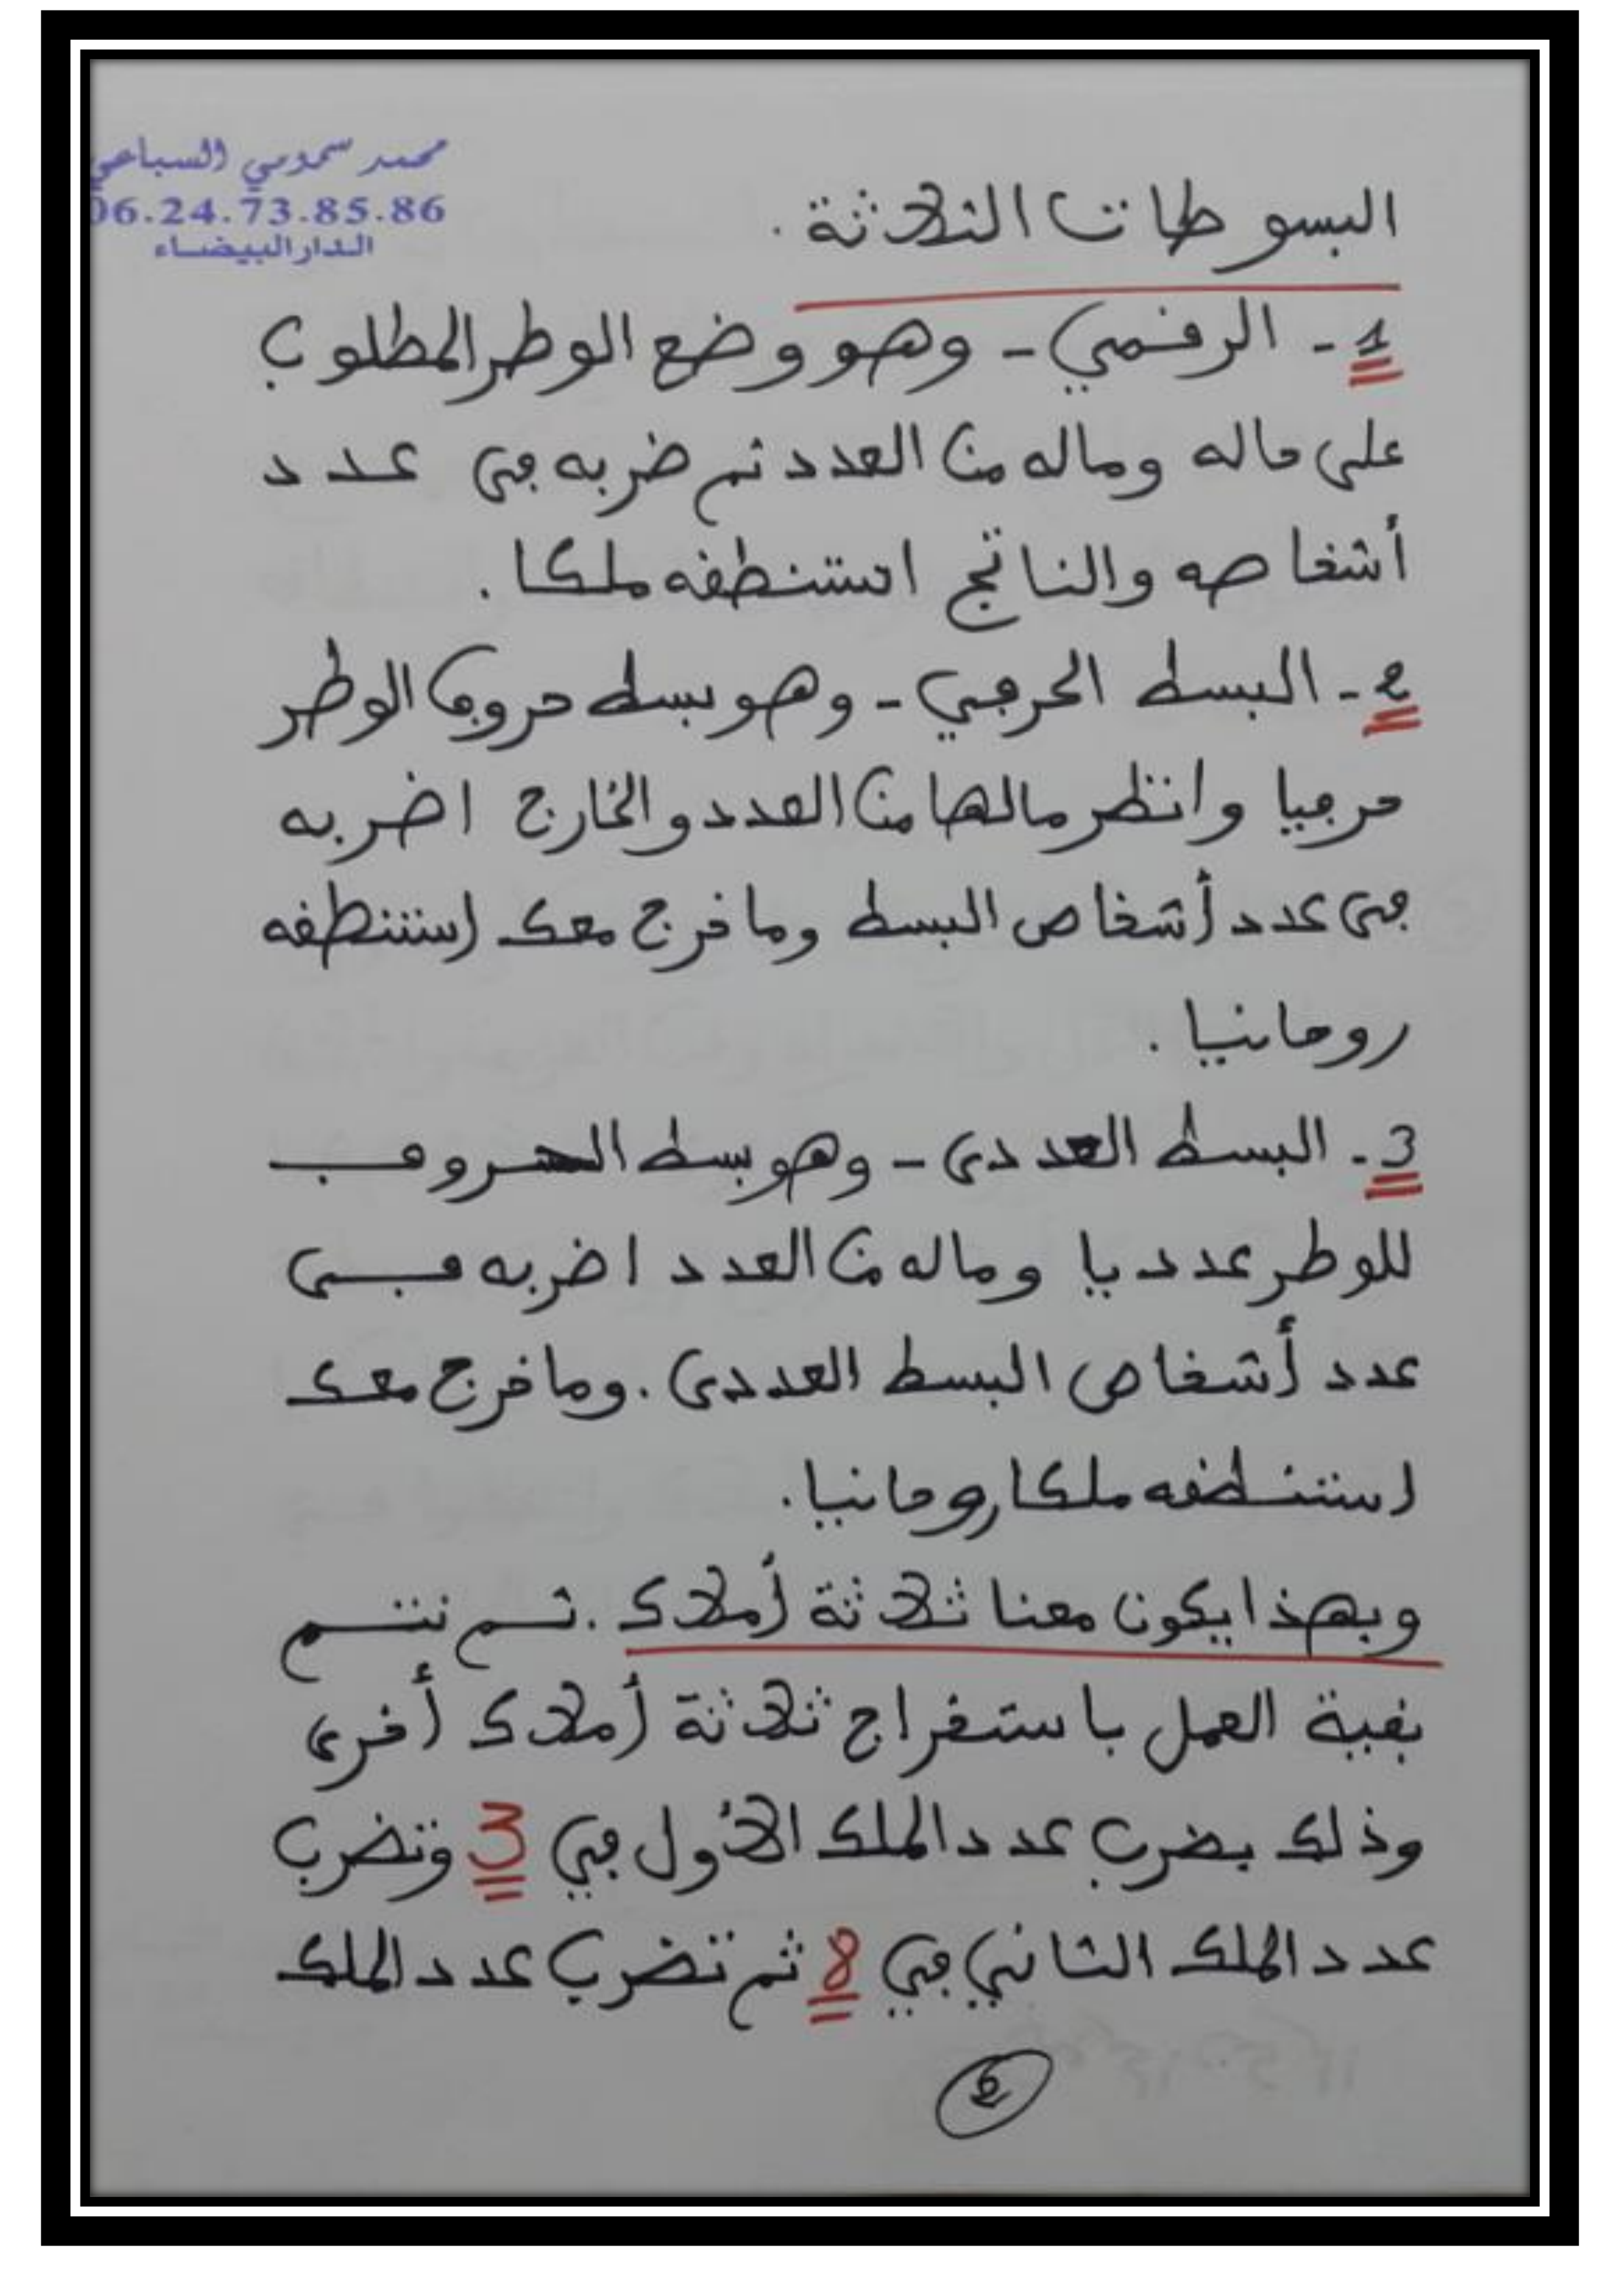 محمد سمومي السباعي
06.24.73.85.86
الدار البيضاء
البسوطات الثلاثة.
1- الرقمي - وهو وضع الوطر المطلوب
على حاله وماله من العدد ثم ضربه في عدد
أشخاصه والناتج استنطقه ملكا.
2- البسط الحرفي - وهو بسط حروف الوطر
حرفيا وانظر مالها من العدد والخارج اضربه
في عدد أشخاص البسط وما خرج معك استنطقه
روحانيا.
3- البسط العددي - وهو بسط الحروف
للوطر عدديا وماله من العدد اضربه في
عدد أشخاص البسط العددي. وما خرج معك
استنطقه ملكا روحانيا.
وبهذا يكون معنا ثلاثة أملاك. ثم نتم
بقية العمل باستخراج ثلاثة أملاك أخرى
وذلك بضرب عدد الملك الأول في 3 وتضرب
عدد الملك الثاني في 8 ثم تضرب عدد الملك
6